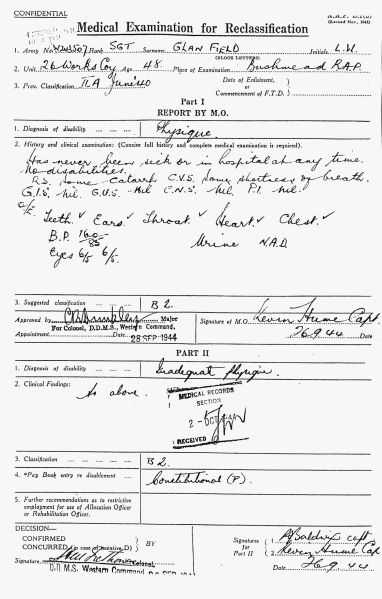 CONFIDENTIAL
Medical Examination for Reclassification
1. Army No. Rank SGT Surname GLANFIELD Initials L.W.
(BLOCK LETTERS)
2. Unit 26 Works Coy Age 48. Place of Examination Bushmead R.A.P.
3. Prev. Classification II A June '40 Date of Enlistment or Commencement of F.T.D.
Part I
REPORT BY M.O.
1. Diagnosis of disability Physique.
2. History and clinical examination: (Concise full history and complete medical examination is required).
Has never been sick or in hospital at any time.
No disabilities.
R.S. some Catarrh C.V.S. some shortness of breath.
G.I.S. Nil. G.U.S. Nil C.N.S. Nil. P.I. Nil.
O/E. Teeth. ✓ Ears. ✓ Throat. ✓ Heart. ✓ Chest. ✓
B.P. 160/85 Urine N.A.D
Eyes 6/5 6/5.
3. Suggested classification B 2.
Approved by Major
For Colonel, D.D.M.S., Western Command.
Signature of M.O. Kevin Hume Capt
Appointment Date 28 SEP 1944 Date 26.9.44
PART II
1. Diagnosis of disability Inadequate physique.
2. Clinical Findings: As above.
MEDICAL RECORDS
SECTION
2 - OCT 1944
RECEIVED
3. Classification B 2.
4. *Pay Book entry re disablement Constitutional (P).
5. Further recommendations as to restrictive
employment for use of Allocation Officer
or Rehabilitation Officer.
DECISION—
CONFIRMED
CONCURRED (in case of tentative D) BY
Signature Colonel,
D.D.M.S. Western Command
Signatures for Part II
1. Baldwin Capt
2. Kevin Hume Cap
Date 26.9.44